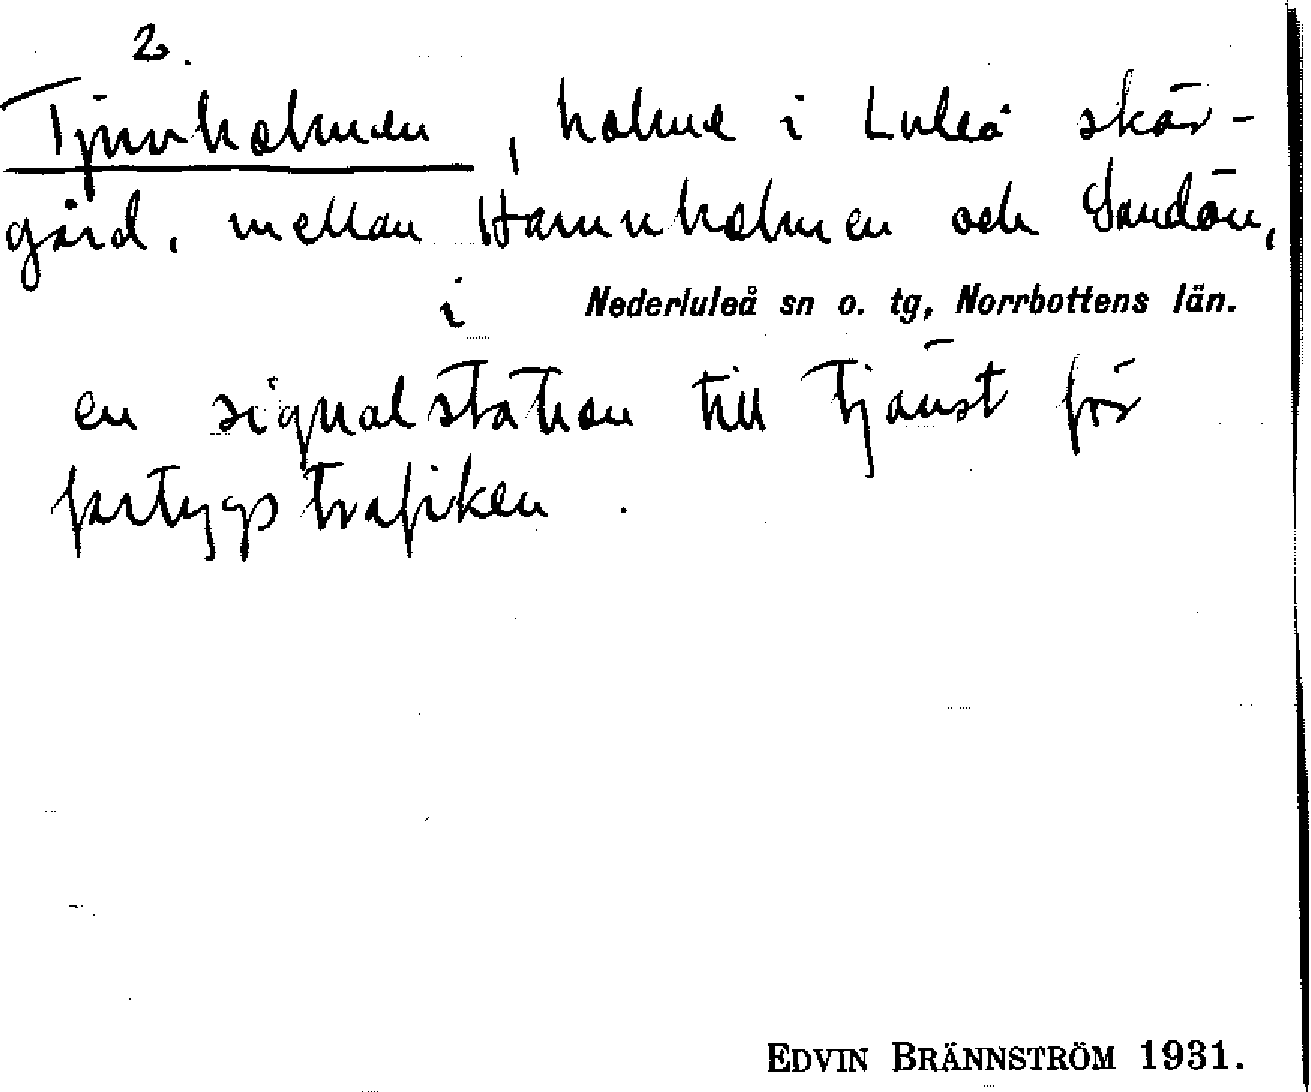 2.
Tjuvholmen, holme i Luleå skär-
gård, mellan Hamnholmen och Sandön,
i Nederluleå sn o. tg, Norrbottens län.
en signalstation till tjänst för
fartygstrafiken.
EDVIN BRÄNNSTRÖM 1931.